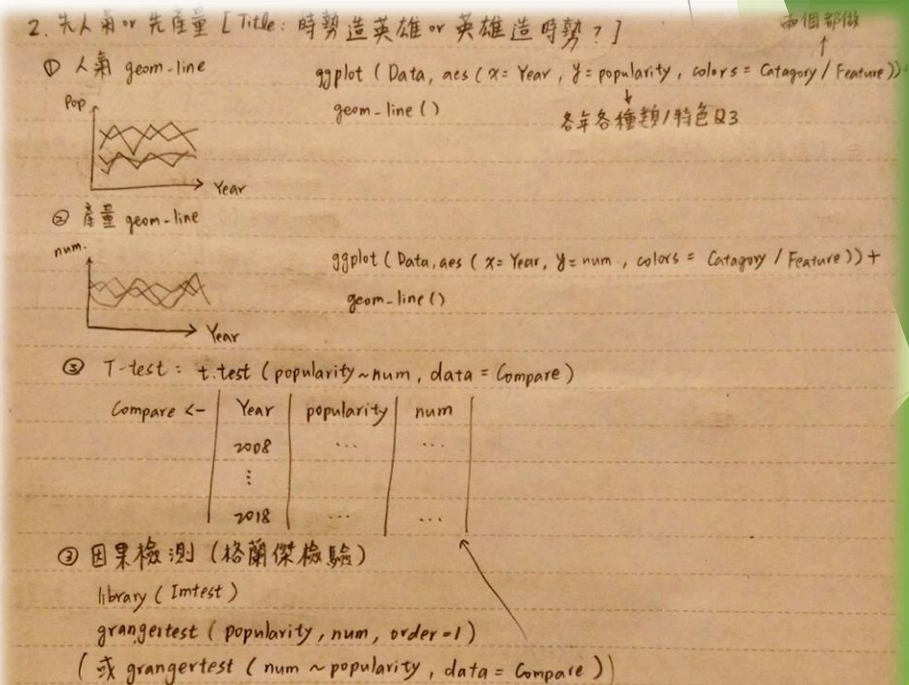 2. 先人氣 or 先產量 [Title: 時勢造英雄 or 英雄造時勢?]
兩個都做
① 人氣 geom-line
ggplot (Data, aes (x= Year, y= popularity, colors = Catagory / Feature))+
geom-line ()
各年各種類/特色Q3
Pop
Year
② 產量 geom-line
num.
ggplot (Data, aes (x= Year, y= num, colors = Catagory / Feature)) +
geom-line ()
Year
③ T-test: t.test (popularity ~ num, data = Compare)
Compare <- | Year | popularity | num |
2008 ... ...
⋮
2018 ... ...
③ 因果檢測 (格蘭傑檢驗)
library (lmtest)
grangertest (popularity, num, order=1)
(或 grangertest (num ~ popularity, data = Compare))